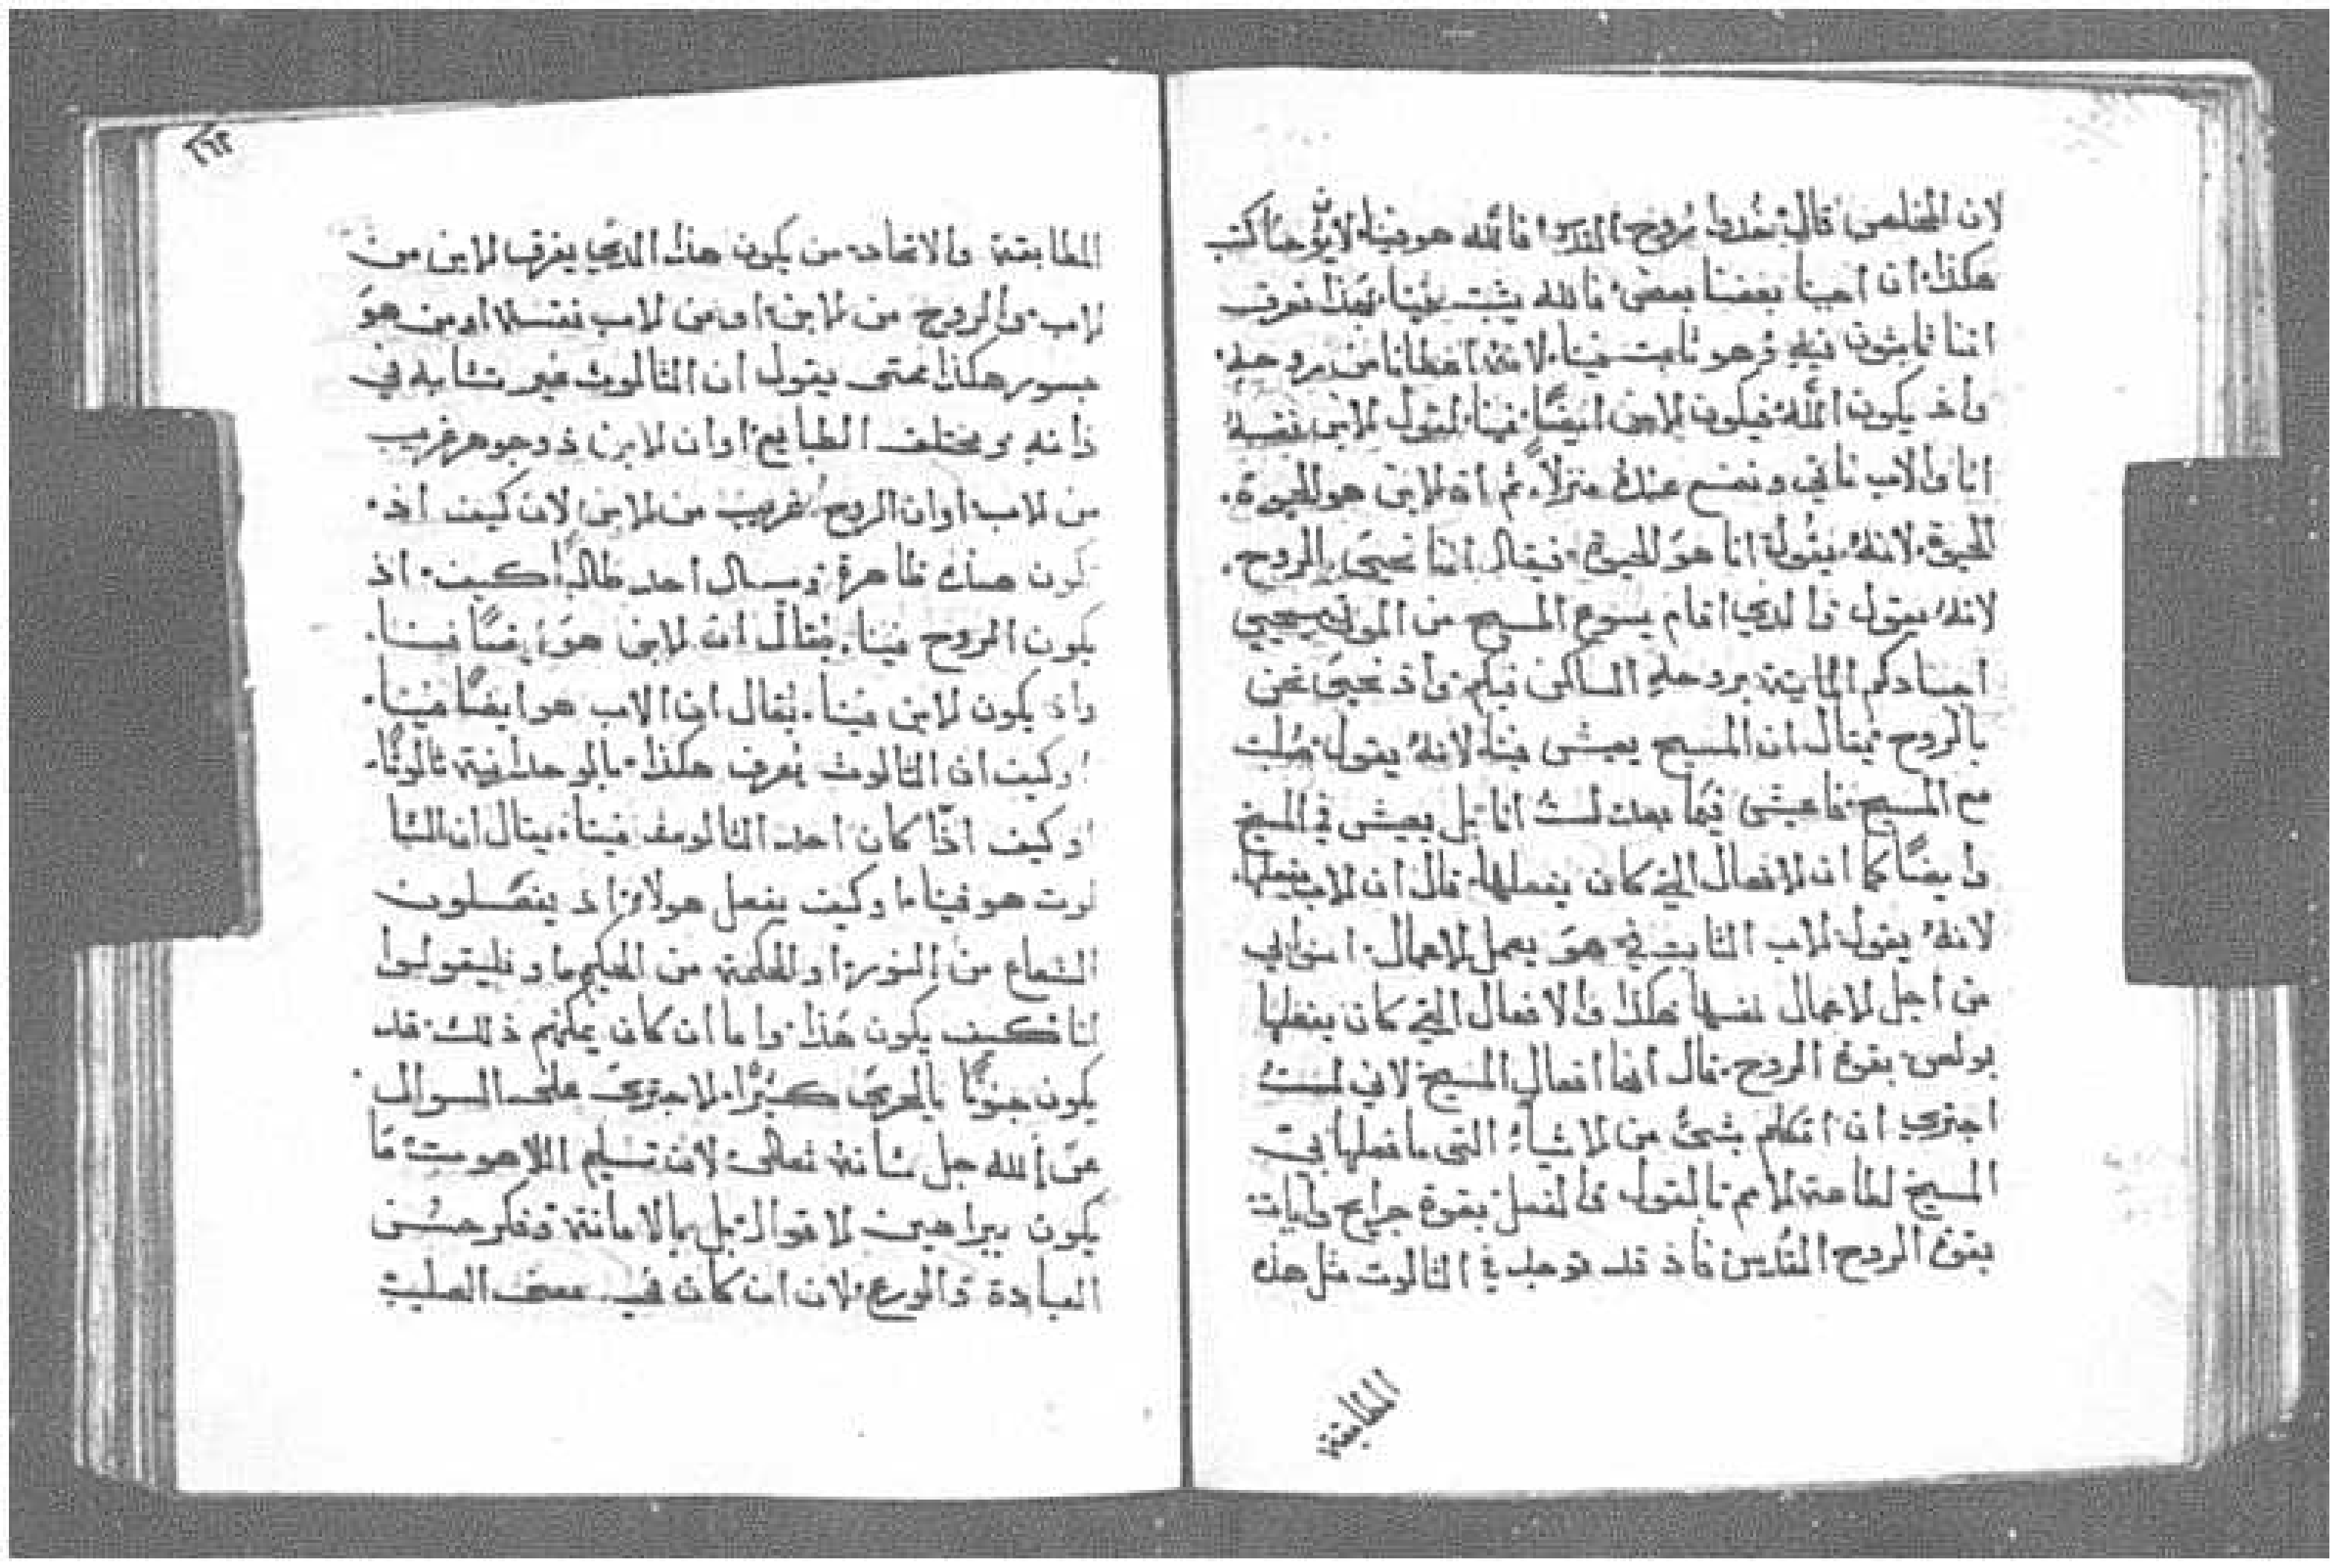 لان المخلص قال خذوا روح القدس فالله هو فينا لان يوحنا كتب
هكذا ان احبنا بعضنا بعض فالله يثبت فينا بهذا نعرف
اننا ثابتون فيه وهو ثابت فينا لانه اعطانا من روحه
واذ يكون الله فيكون الابن ايضًا فينا لقول الابن نفسه
انا والاب ناتي ونصنع عنده منزلاً ثم ان الابن هو الحيوة
الحيوة لانه يقول انا هو الحيوة فيقال اننا نحيى بالروح
لانه يقول والدي اقام يسوع المسيح من الموت سيحيي
اجسادكم المايتة بروحه الساكن فيكم واذ نحيى نحن
بالروح يقال ان المسيح يعيش فينا لانه يقول صلبت
مع المسيح فاعيش فيما بعد لست انا بل يعيش في المسيح
وايضًا كما ان الافعال التي كان يفعلها قال ان الاب يفعلها
لانه يقول الاب الثابت في هو يعمل الاعمال امنوا بي
من اجل الاعمال نفسها هكذا والافعال التي كان يفعلها
بولص بقوة الروح قال انها افعال المسيح لاني لست
اجتري ان اتكلم بشئ من الاشياء التي ما فعلها بي
المسيح لطاعة الامم بالقول والفعل بقوة جرايح وايات
بقوة الروح القدس فاذ قد توجد في الثالوث مثل هذه
المطابقة
٢٦٣
المطابقة والاتحاد من يكون هذا الذي يفرق الابن من
الاب والروح من الابن او من الاب نفسه او من هو
جسور هكذا حتى يقول ان الثالوث غير متشابه في
ذاته ومختلف الطبايع او ان الابن ذو جوهر غريب
من الاب او ان الروح غريب من الابن لان كيف اذ
تكون هذه ظاهرة ويسال احد طالبًا كيف اذ
يكون الروح فينا يقال ان الابن هو ايضًا فينا
واذ يكون الابن فينا يقال ان الاب هو ايضًا فينا
او كيف ان الثالوث يعرف هكذا بالوحدانية ثالوثًا
او كيف اذا كان احد الثالوث فينا يقال ان الثا
لوث هو فينا او كيف يفعل هولاء اذ يفصلون
الشعاع من النور او الحكمة من الحكيم او فليقولوا
لنا كيف يكون هذا واما ان كان يمكنهم ذلك قد
يكون جنونًا بالحري كثيرًا الاجترى على السوال
عن الله جل شانه تعالى لان تسليم اللاهوت ما
يكون ببراهين الاقوال بل بالامانة وفكر حسن
العبادة والورع لان ان كان في معنى الصليب